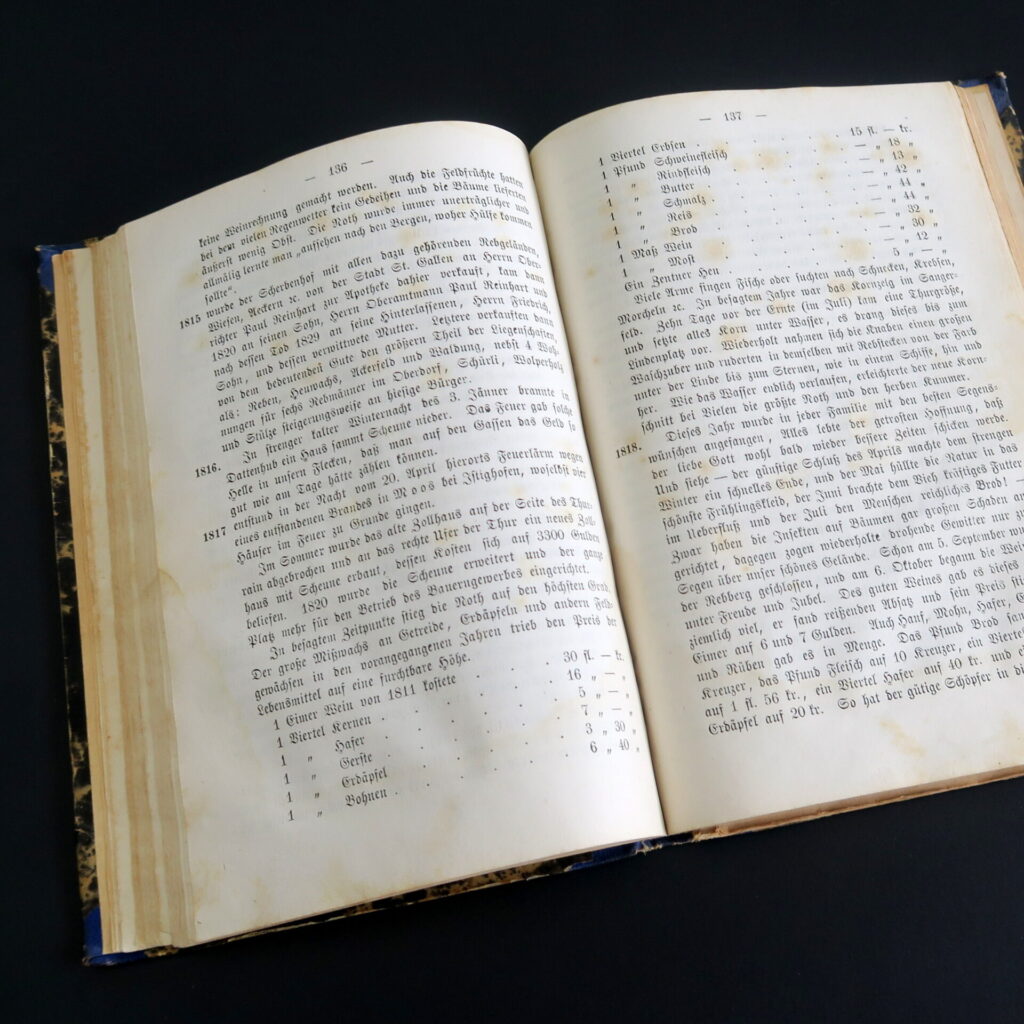 — 136 —
keine Weinrechnung gemacht werden. Auch die Feldfrüchte hatten
bei dem vielen Regenwetter kein Gedeihen und die Bäume lieferten
äußerst wenig Obst. Die Noth wurde immer unerträglicher und
allmälig lernte man „aufsehen nach den Bergen, woher Hülfe kommen
sollte“.
1815 wurde der Scherbenhof mit allen dazu gehörenden Rebgeländen,
Wiesen, Aeckern ꝛc. von der Stadt St. Gallen an Herrn Ober-
richter Paul Reinhart zur Apotheke dahier verkauft, kam dann
1820 an seinen Sohn, Herrn Oberamtmann Paul Reinhart und
nach dessen Tod 1829 an seine Hinterlassenen, Herrn Friedrich,
Sohn, und dessen verwittwete Mutter. Letztere verkauften dann
von dem bedeutenden Gute den größern Theil der Liegenschaften,
als: Reben, Heuwachs, Ackerfeld und Waldung, nebst 4 Woh-
nungen für sechs Rebmänner im Oberdorf, Schürli, Wolperholz
und Stülze steigerungsweise an hiesige Bürger.
1816. In strenger kalter Winternacht des 3. Jänner brannte in
Dattenhub ein Haus sammt Scheune nieder. Das Feuer gab solche
Helle in unsern Flecken, daß man auf den Gassen das Geld so
gut wie am Tage hätte zählen können.
1817 entstund in der Nacht vom 20. April hierorts Feuerlärm wegen
eines entstandenen Brandes in Moos bei Istighofen, woselbst vier
Häuser im Feuer zu Grunde gingen.
Im Sommer wurde das alte Zollhaus auf der Seite des Thur-
rain abgebrochen und an das rechte Ufer der Thur ein neues Zoll-
haus mit Scheune erbaut, dessen Kosten sich auf 3300 Gulden
beliefen. 1820 wurde die Scheune erweitert und der ganze
Platz mehr für den Betrieb des Bauerngewerbes eingerichtet.
In besagtem Zeitpunkte stieg die Noth auf den höchsten Grad.
Der große Mißwachs an Getreide, Erdäpfeln und andern Feld-
gewächsen in den vorangegangenen Jahren trieb den Preis der
Lebensmittel auf eine furchtbare Höhe.
1 Eimer Wein von 1811 kostete . . . 30 fl. — kr.
1 Viertel Kernen . . . . . 16 „ — „
1 „ Hafer . . . . . 5 „ — „
1 „ Gerste . . . . . 7 „ — „
1 „ Erdäpfel . . . . . 3 „ 30 „
1 „ Bohnen . . . . . 6 „ 40 „
— 137 —
1 Viertel Erbsen . . . . 15 fl. — kr.
1 Pfund Schweinefleisch . . . . — „ 18 „
1 „ Rindfleisch . . . . — „ 13 „
1 „ Butter . . . . — „ 42 „
1 „ Schmalz . . . . — „ 44 „
1 „ Reis . . . . — „ 44 „
1 „ Brod . . . . — „ 32 „
1 Maß Wein . . . . — „ 30 „
1 „ Most . . . . — „ 12 „
Ein Zentner Heu . . . . 5 „ — „
Viele Arme fingen Fische oder suchten nach Schnecken, Krebsen,
Morcheln ꝛc. In besagtem Jahre war das Kornzelg im Sanger-
feld. Zehn Tage vor der Ernte (im Juli) kam eine Thurgröße,
und setzte alles Korn unter Wasser, es drang dieses bis zum
Lindenplatz vor. Wiederholt nahmen sich die Knaben einen großen
Waschzuber und ruderten in demselben mit Rebstecken von der Farb
unter der Linde bis zum Sternen, wie in einem Schiffe, hin und
her. Wie das Wasser endlich verlaufen, erleichterte der neue Korn-
schnitt bei Vielen die größte Noth und den herben Kummer.
1818. Dieses Jahr wurde in jeder Familie mit den besten Segens-
wünschen angefangen, Alles lebte der getrosten Hoffnung, daß
der liebe Gott wohl bald wieder bessere Zeiten schicken werde.
Und siehe — der günstige Schluß des Aprils machte dem strengen
Winter ein schnelles Ende, und der Mai hüllte die Natur in das
schönste Frühlingskleid, der Juni brachte dem Vieh kräftiges Futter
im Ueberfluß und der Juli den Menschen reichliches Brod! —
Zwar haben die Insekten auf Bäumen gar großen Schaden an-
gerichtet, dagegen zogen wiederholte drohende Gewitter nur zum
Segen über unser schönes Gelände. Schon am 5. September wurde
der Rebberg geschlossen, und am 6. Oktober begann die Weinlese
unter Freude und Jubel. Des guten Weines gab es dieses
ziemlich viel, er fand reißenden Absatz und sein Preis stieg
Eimer auf 6 und 7 Gulden. Auch Hanf, Mohn, Hafer,
und Rüben gab es in Menge. Das Pfund Brod
Kreuzer, das Pfund Fleisch auf 10 Kreuzer, ein Viertel
auf 1 fl. 56 kr., ein Viertel Hafer auf 40 kr. und
Erdäpfel auf 20 kr. So hat der gütige Schöpfer in